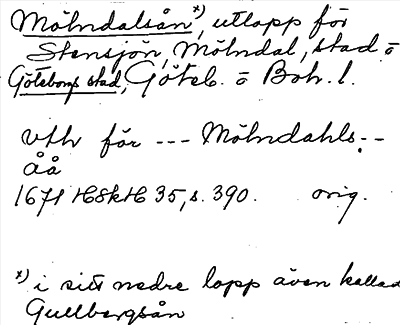 Mölndalsån x), utlopp för
Stensjön, Mölndal, stad o
Göteborgs stad, Göteb. o Boh. l.
vth för --- Mölndahls --
åå
1671 HSkH 35, s. 390. orig.
x) i sitt nedre lopp även kallad
Gullbergsån